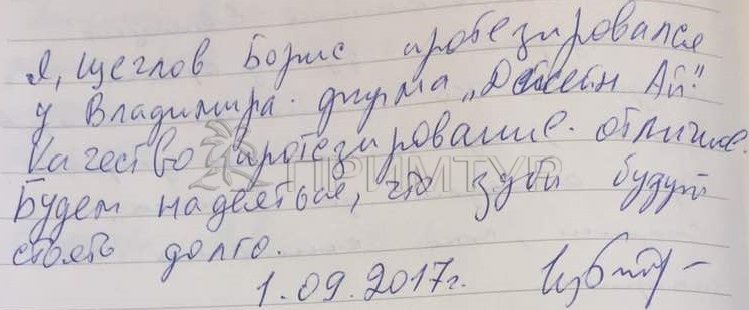 Я, Щеглов Борис протезировался
у Владимира. фирма „Джейн Ай".
Качество протезирование. отличное.
Будем надеяться, что зубы будут
стоять долго.
1.09.2017г.
ПРИМТУР